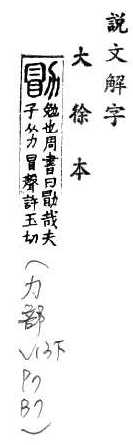 説文解字
大徐本
勖
勉也周書曰勖哉夫
子从力冒聲許玉切
(力部
V13下
P7
B7)